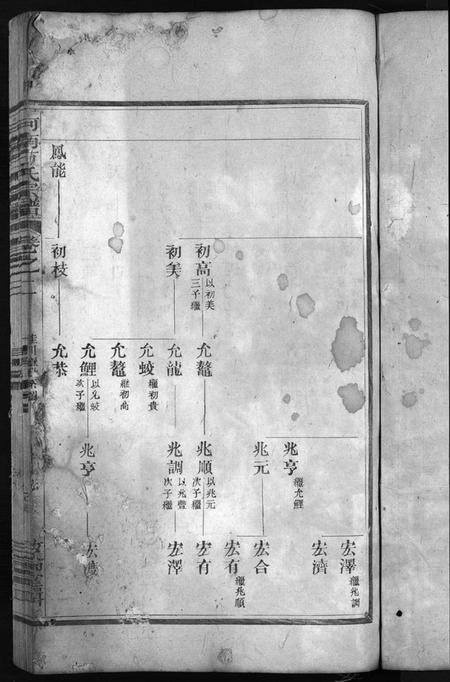 宏澤 繼兆調
宏濟
兆亨 繼允鯉
兆元
宏合
宏有 繼兆順
初高 以初美三子繼
允鼇
兆順 以兆元次子繼
宏有
初美
允龍
兆調 以兆豐次子繼
宏澤
允蛟 繼初貴
允鼇 繼初高
允鯉 以允蛟次子繼
兆亨
鳳能
初枝
允恭
河南
氏宗譜
卷之